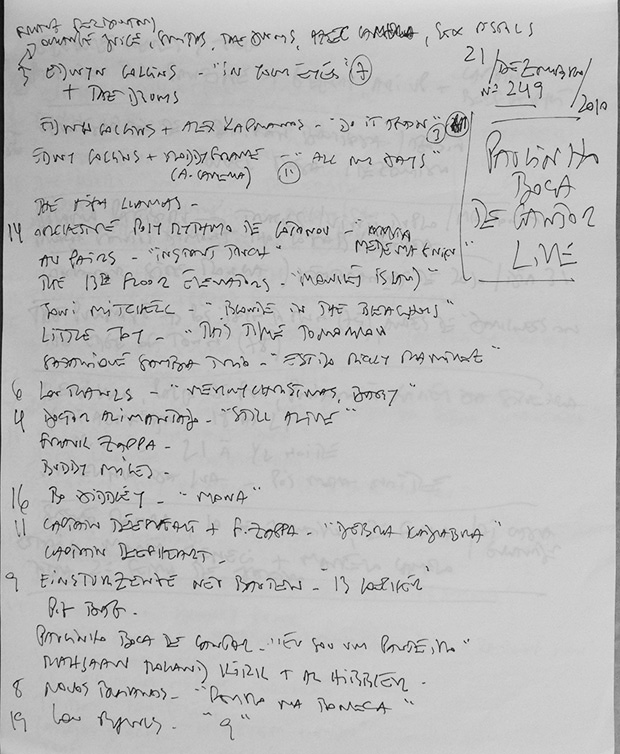 ORANGE JUICE, SMITHS, THE DRUMS, AZTEC CAMERA, SEX PISTOLS
EDWYN COLLINS - "IN YOUR EYES" 7
+ THE DRUMS
EDWYN COLLINS + ALEX KAPRANOS - "DO IT AGAIN"
EDWYN COLLINS + RODDY FRAME - "ALL MY DAYS"
(A. CAMERA) 11
THE HIGH LLAMAS -
14 ORCHESTRE POLY RYTHMO DE COTONOU -
AU PAIRS - "INSTANT TOUCH"
THE 13TH FLOOR ELEVATORS - "MONKEY ISLAND"
JONI MITCHELL - "BLONDE IN THE BLEACHERS"
LITTLE JOY - "THIS TIME TOMORROW
SATANIQUE SAMBA TRIO - "
6 LOU RAWLS - "MERRY CHRISTMAS, BABY"
4 DOCTOR ALIMANTADO - "STILL ALIVE"
FRANK ZAPPA -
BUDDY MILES -
16 BO DIDDLEY - "MONA"
11 CAPTAIN BEEFHEART + F. ZAPPA - "DEBRA KADABRA"
CAPTAIN BEEFHEART -
9 EINSTURZENDE NEUBAUTEN -
PAULINHO BOCA DE CANTOR - "EU SOU UM PANDEIRO"
RAHSAAN ROLAND KIRK + AL HIBBLER -
8 NOVOS BAIANOS - "
19 - "9"
21/DEZEMBRO/2010
Nº 249
PAULINHO
BOCA
DE CANTOR
LIVE